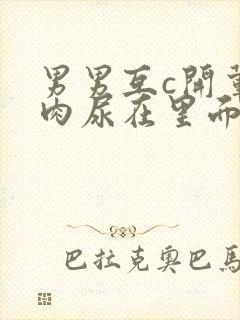 男男互c開葷
肉尿在里面
巴拉克奧巴馬